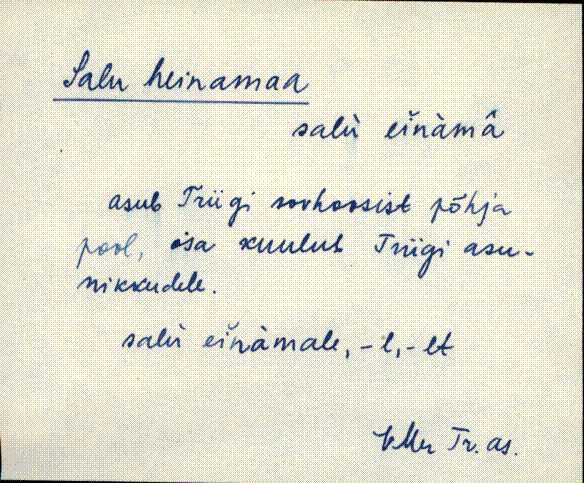 Salu heinamaa
salù eĭnàmâ
asub Triigi sovhoosist põhja
pool, osa kuulub Triigi asu-
nikkudele.
salù eĭnàmale, -l, -lt
VMr Tr. as.